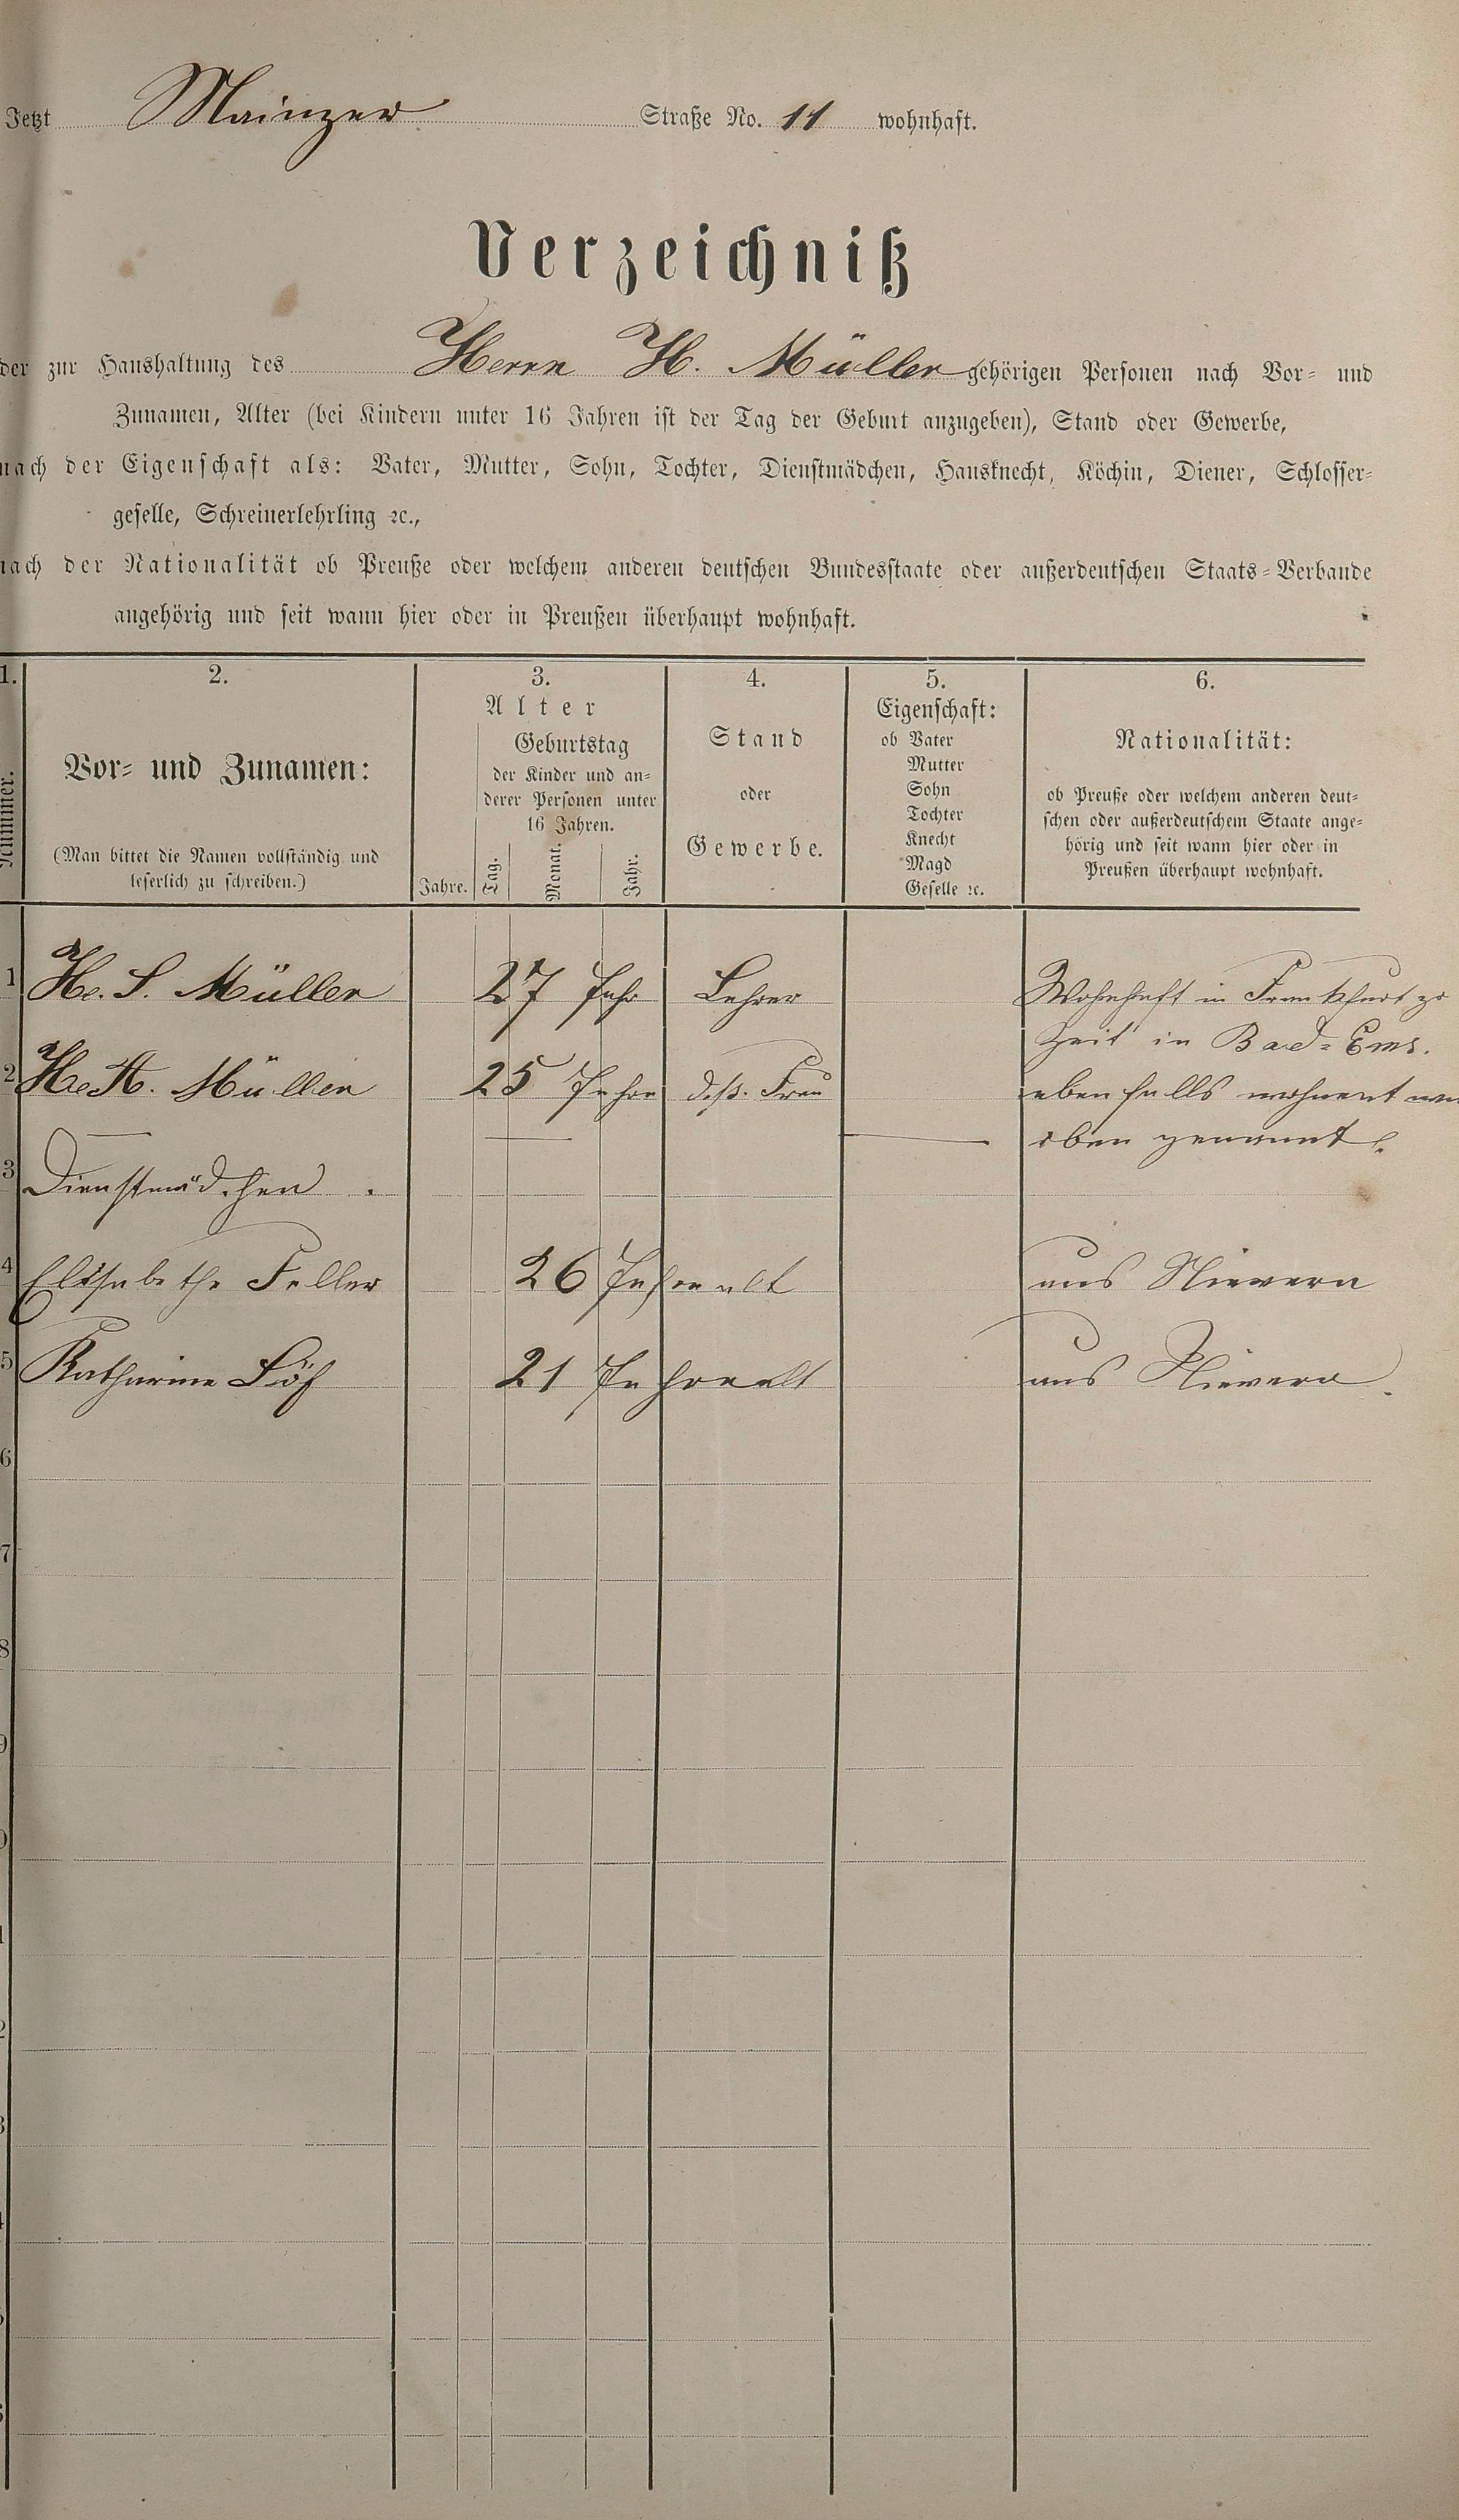 Jetzt Mainzer Straße No. 11 wohnhaft.
Verzeichniß
der zur Haushaltung des Herrn H. Müller gehörigen Personen nach Vor- und
Zunamen, Alter (bei Kindern unter 16 Jahren ist der Tag der Geburt anzugeben), Stand oder Gewerbe,
nach der Eigenschaft als: Vater, Mutter, Sohn, Tochter, Dienstmädchen, Hausknecht, Köchin, Diener, Schlosser-
geselle, Schreinerlehrling ꝛc.,
nach der Nationalität ob Preuße oder welchem anderen deutschen Bundesstaate oder außerdeutschen Staats-Verbande
angehörig und seit wann hier oder in Preußen überhaupt wohnhaft.
1.
Nummer.
2.
Vor- und Zunamen:
(Man bittet die Namen vollständig und
leserlich zu schreiben.)
3.
Alter
Geburtstag
der Kinder und an-
derer Personen unter
16 Jahren.
Jahre. Tag. Monat. Jahr.
4.
Stand
oder
Gewerbe.
5.
Eigenschaft:
ob Vater
Mutter
Sohn
Tochter
Knecht
Magd
Geselle ꝛc.
6.
Nationalität:
ob Preuße oder welchem anderen deut-
schen oder außerdeutschem Staate ange-
hörig und seit wann hier oder in
Preußen überhaupt wohnhaft.
1 He. S. Müller 27 Jahr Lehrer Wohnhaft in Frankfurt zr
Zeit in Bad-Ems.
2 Müller 25 Jahre deß. Frau ebenfalls wohnent
oben genannt.
3 Dienstmädchen.
4 Elisabethe Feller 26 Jahre alt aus Nievern
5 Katharine Löf 21 Jahre alt aus Nievern.
6
7
8
9